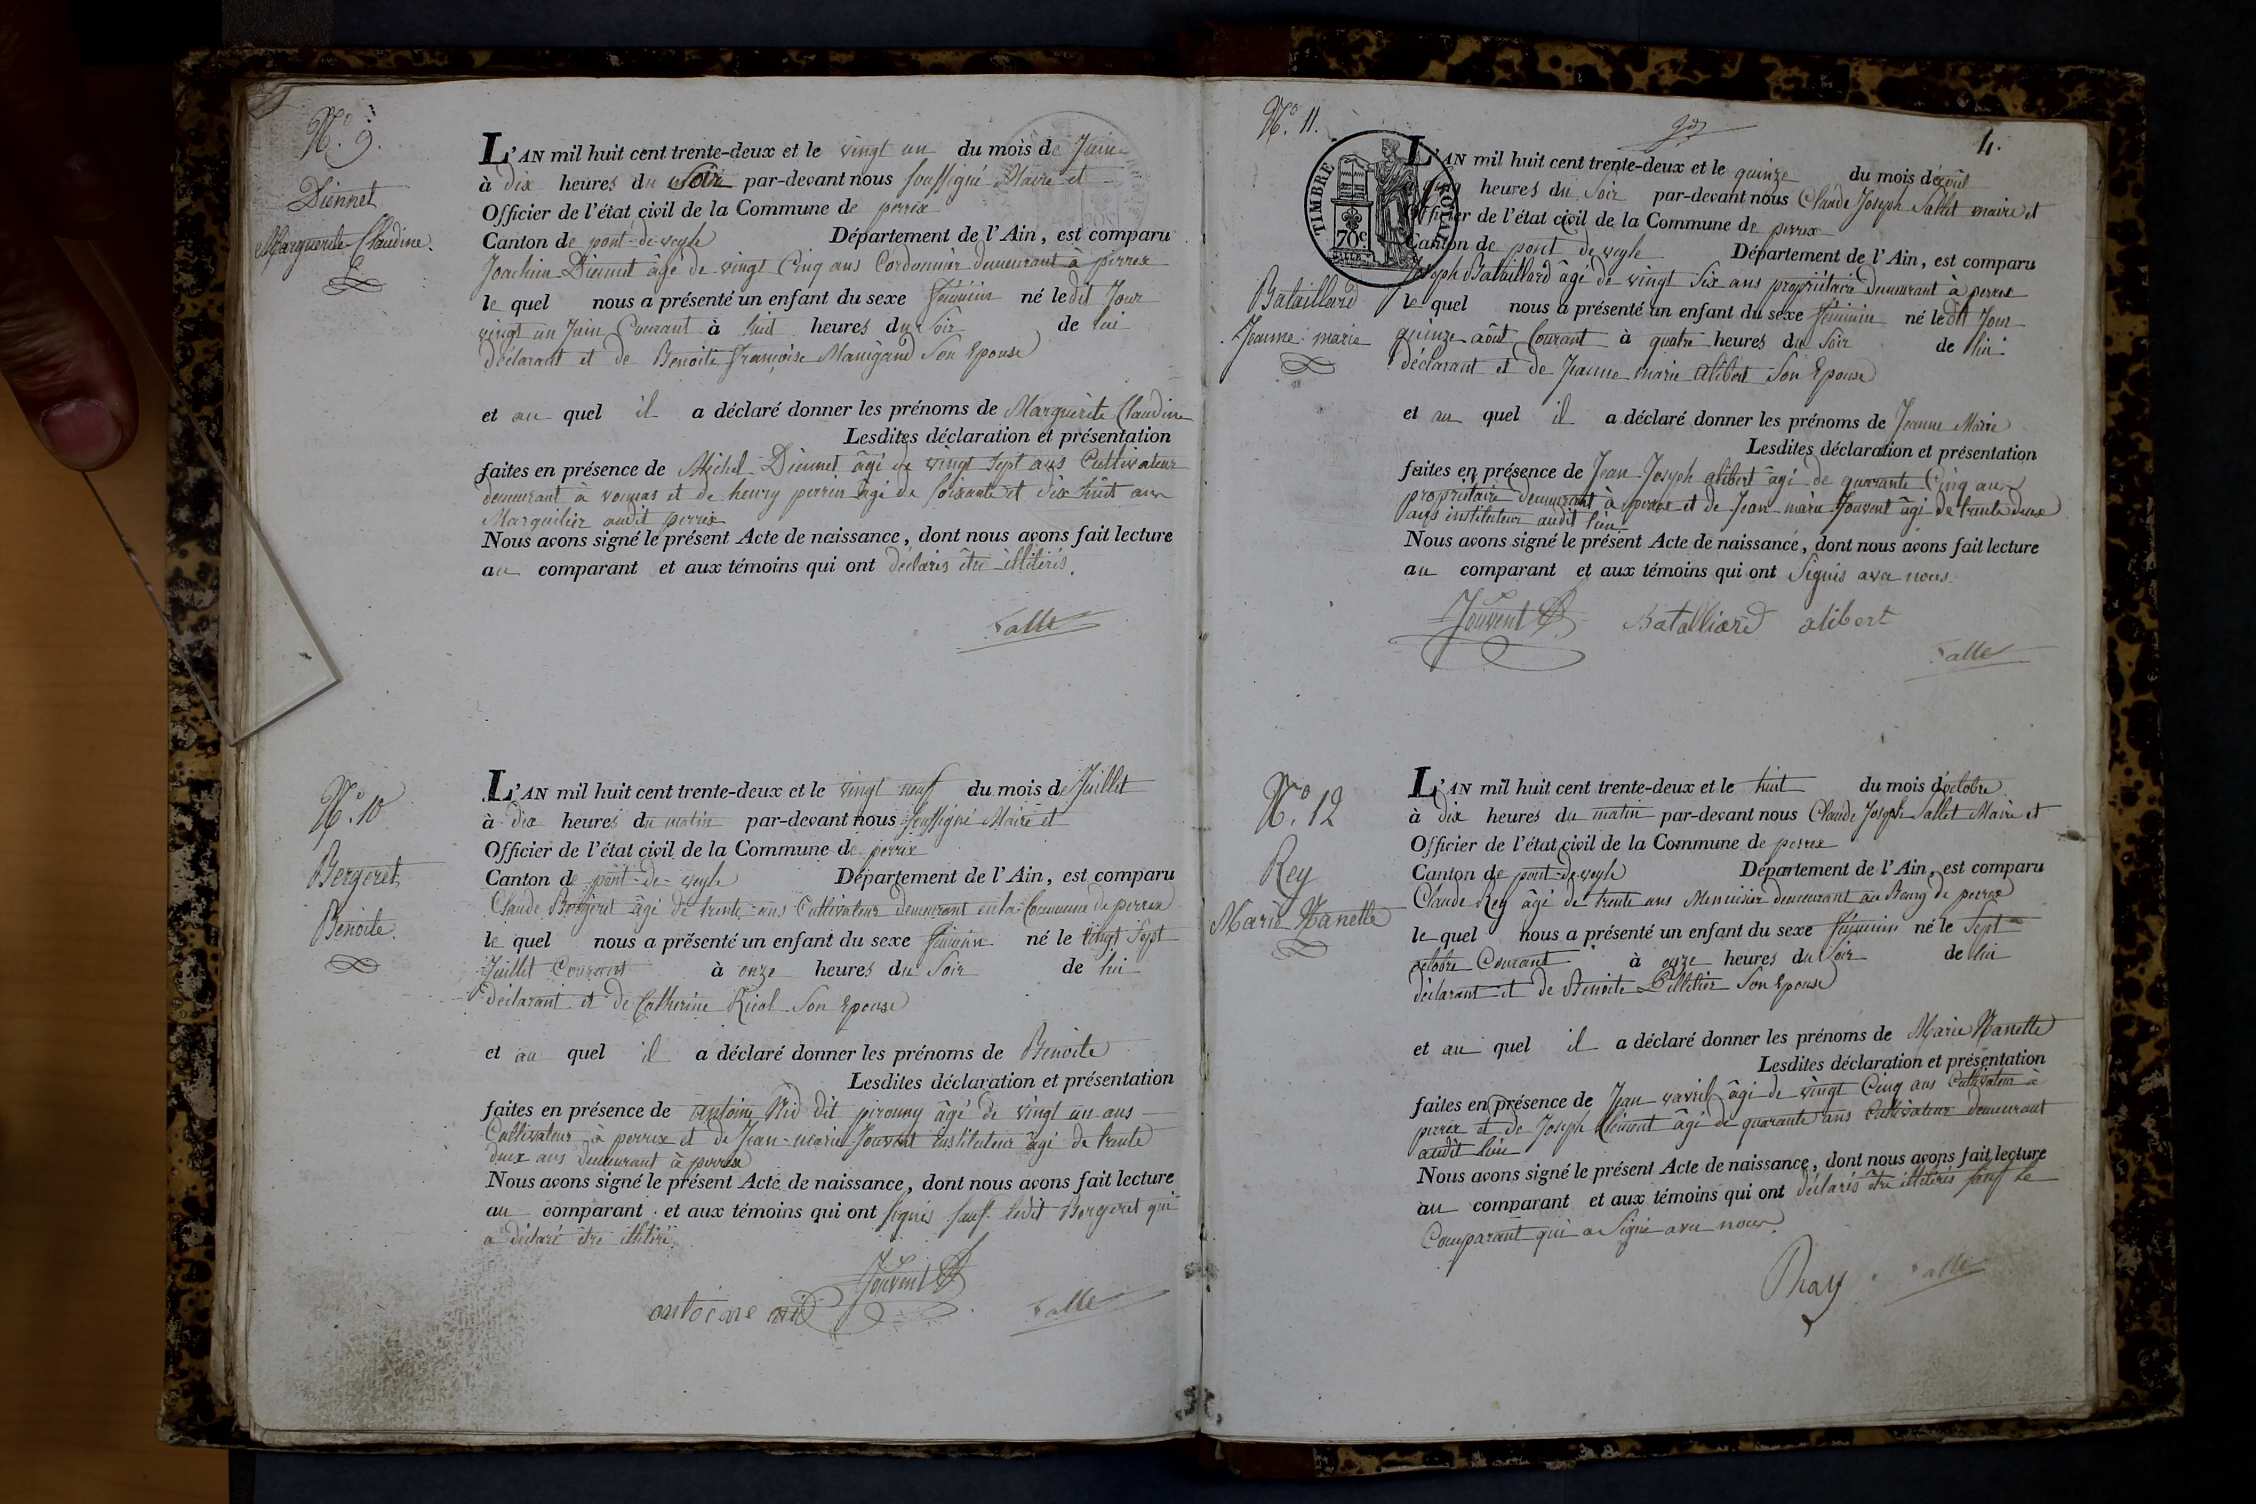 N.º 9.
Diennet
Marguerite Claudine.
L'AN mil huit cent trente-deux et le vingt un du mois de Juin
à dix heures du Soir par-devant nous soussigné Maire et
Officier de l'état civil de la Commune de perrex
Canton de pont-de-veyle Département de l'Ain, est comparu
Joachim Diennet âgé de vingt Cinq ans Cordonnier demeurant à perrex
le quel nous a présenté un enfant du sexe féminin né le dit Jour
vingt un Juin Courant à huit heures du Soir de lui
déclarant et de Benoite françoise Manigand Son Epouse
et au quel il a déclaré donner les prénoms de Marguerite Claudine
Lesdites déclaration et présentation
faites en présence de Michel Diennet âgé de vingt sept ans Cultivateur
demeurant à vonnas et de henry perrin âgé de soixante et dix huit ans
Marguilier audit perrex
Nous avons signé le présent Acte de naissance, dont nous avons fait lecture
au comparant et aux témoins qui ont déclarés être illitérés.
Sallet
N.º 10
Bergeret
Benoite.
L'AN mil huit cent trente-deux et le vingt neuf du mois de Juillet
à dix heures du matin par-devant nous soussigné Maire et
Officier de l'état civil de la Commune de perrex
Canton de pont-de-veyle Département de l'Ain, est comparu
Claude Bergeret âgé de trente ans Cultivateur demeurant en la Commune de perrex
le quel nous a présenté un enfant du sexe féminin né le vingt Sept
Juillet Courant à onze heures du Soir de lui
déclarant et de Catherine Son Epouse
et au quel il a déclaré donner les prénoms de Benoite
Lesdites déclaration et présentation
faites en présence de antoine Nid dit pirouny âgé de vingt un ans
Cultivateur à perrex et de Jean-marie Jouvent instituteur âgé de trente
deux ans demeurant à perrex
Nous avons signé le présent Acte de naissance, dont nous avons fait lecture
au comparant et aux témoins qui ont signés sauf ledit Bergeret qui
a déclaré être illitéré.
Jouvent
antoine nid
Sallet
N.º 11.
4.
TIMBRE ROYAL
70c
Bataillard
Jeanne marie
L'AN mil huit cent trente-deux et le quinze du mois d'août
heures du Soir par-devant nous Claude Joseph Sallet maire et
Officier de l'état civil de la Commune de perrex
Canton de pont de veyle Département de l'Ain, est comparu
Joseph Bataillard âgé de vingt Six ans propriétaire demeurant à perrex
le quel nous a présenté un enfant du sexe féminin né le dit Jour
quinze août Courant à quatre heures du Soir de lui
déclarant et de Jeanne marie alibert Son Epouse
et au quel il a déclaré donner les prénoms de Jeanne Marie
Lesdites déclaration et présentation
faites en présence de Jean Joseph alibert âgé de quarante Cinq ans
propriétaire demeurant à perrex et de Jean marie Jouvent âgé de trente deux
ans instituteur audit lieu
Nous avons signé le présent Acte de naissance, dont nous avons fait lecture
au comparant et aux témoins qui ont Signés avec nous.
Jouvent Batalliard alibert
Sallet
N.º 12
Rey
Marie Nanette
L'AN mil huit cent trente-deux et le huit du mois d'octobre
à dix heures du matin par-devant nous Claude Joseph Sallet Maire et
Officier de l'état civil de la Commune de perrex
Canton de pont-de-veyle Département de l'Ain, est comparu
Claude Rey âgé de trente ans Menuisier demeurant au Bourg de perrex
le quel nous a présenté un enfant du sexe féminin né le Sept
octobre Courant à onze heures du Soir de lui
déclarant et de Benoite Pelletier Son Epouse
et au quel il a déclaré donner les prénoms de Marie Nanette
Lesdites déclaration et présentation
faites en présence de Jean vavril âgé de vingt Cinq ans Cultivateur à
perrex et de Joseph Clément âgé de quarante ans Cultivateur demeurant
audit lieu
Nous avons signé le présent Acte de naissance, dont nous avons fait lecture
au comparant et aux témoins qui ont déclarés être illitérés sauf le
Comparant qui a Signé avec nous.
Ray Sallet